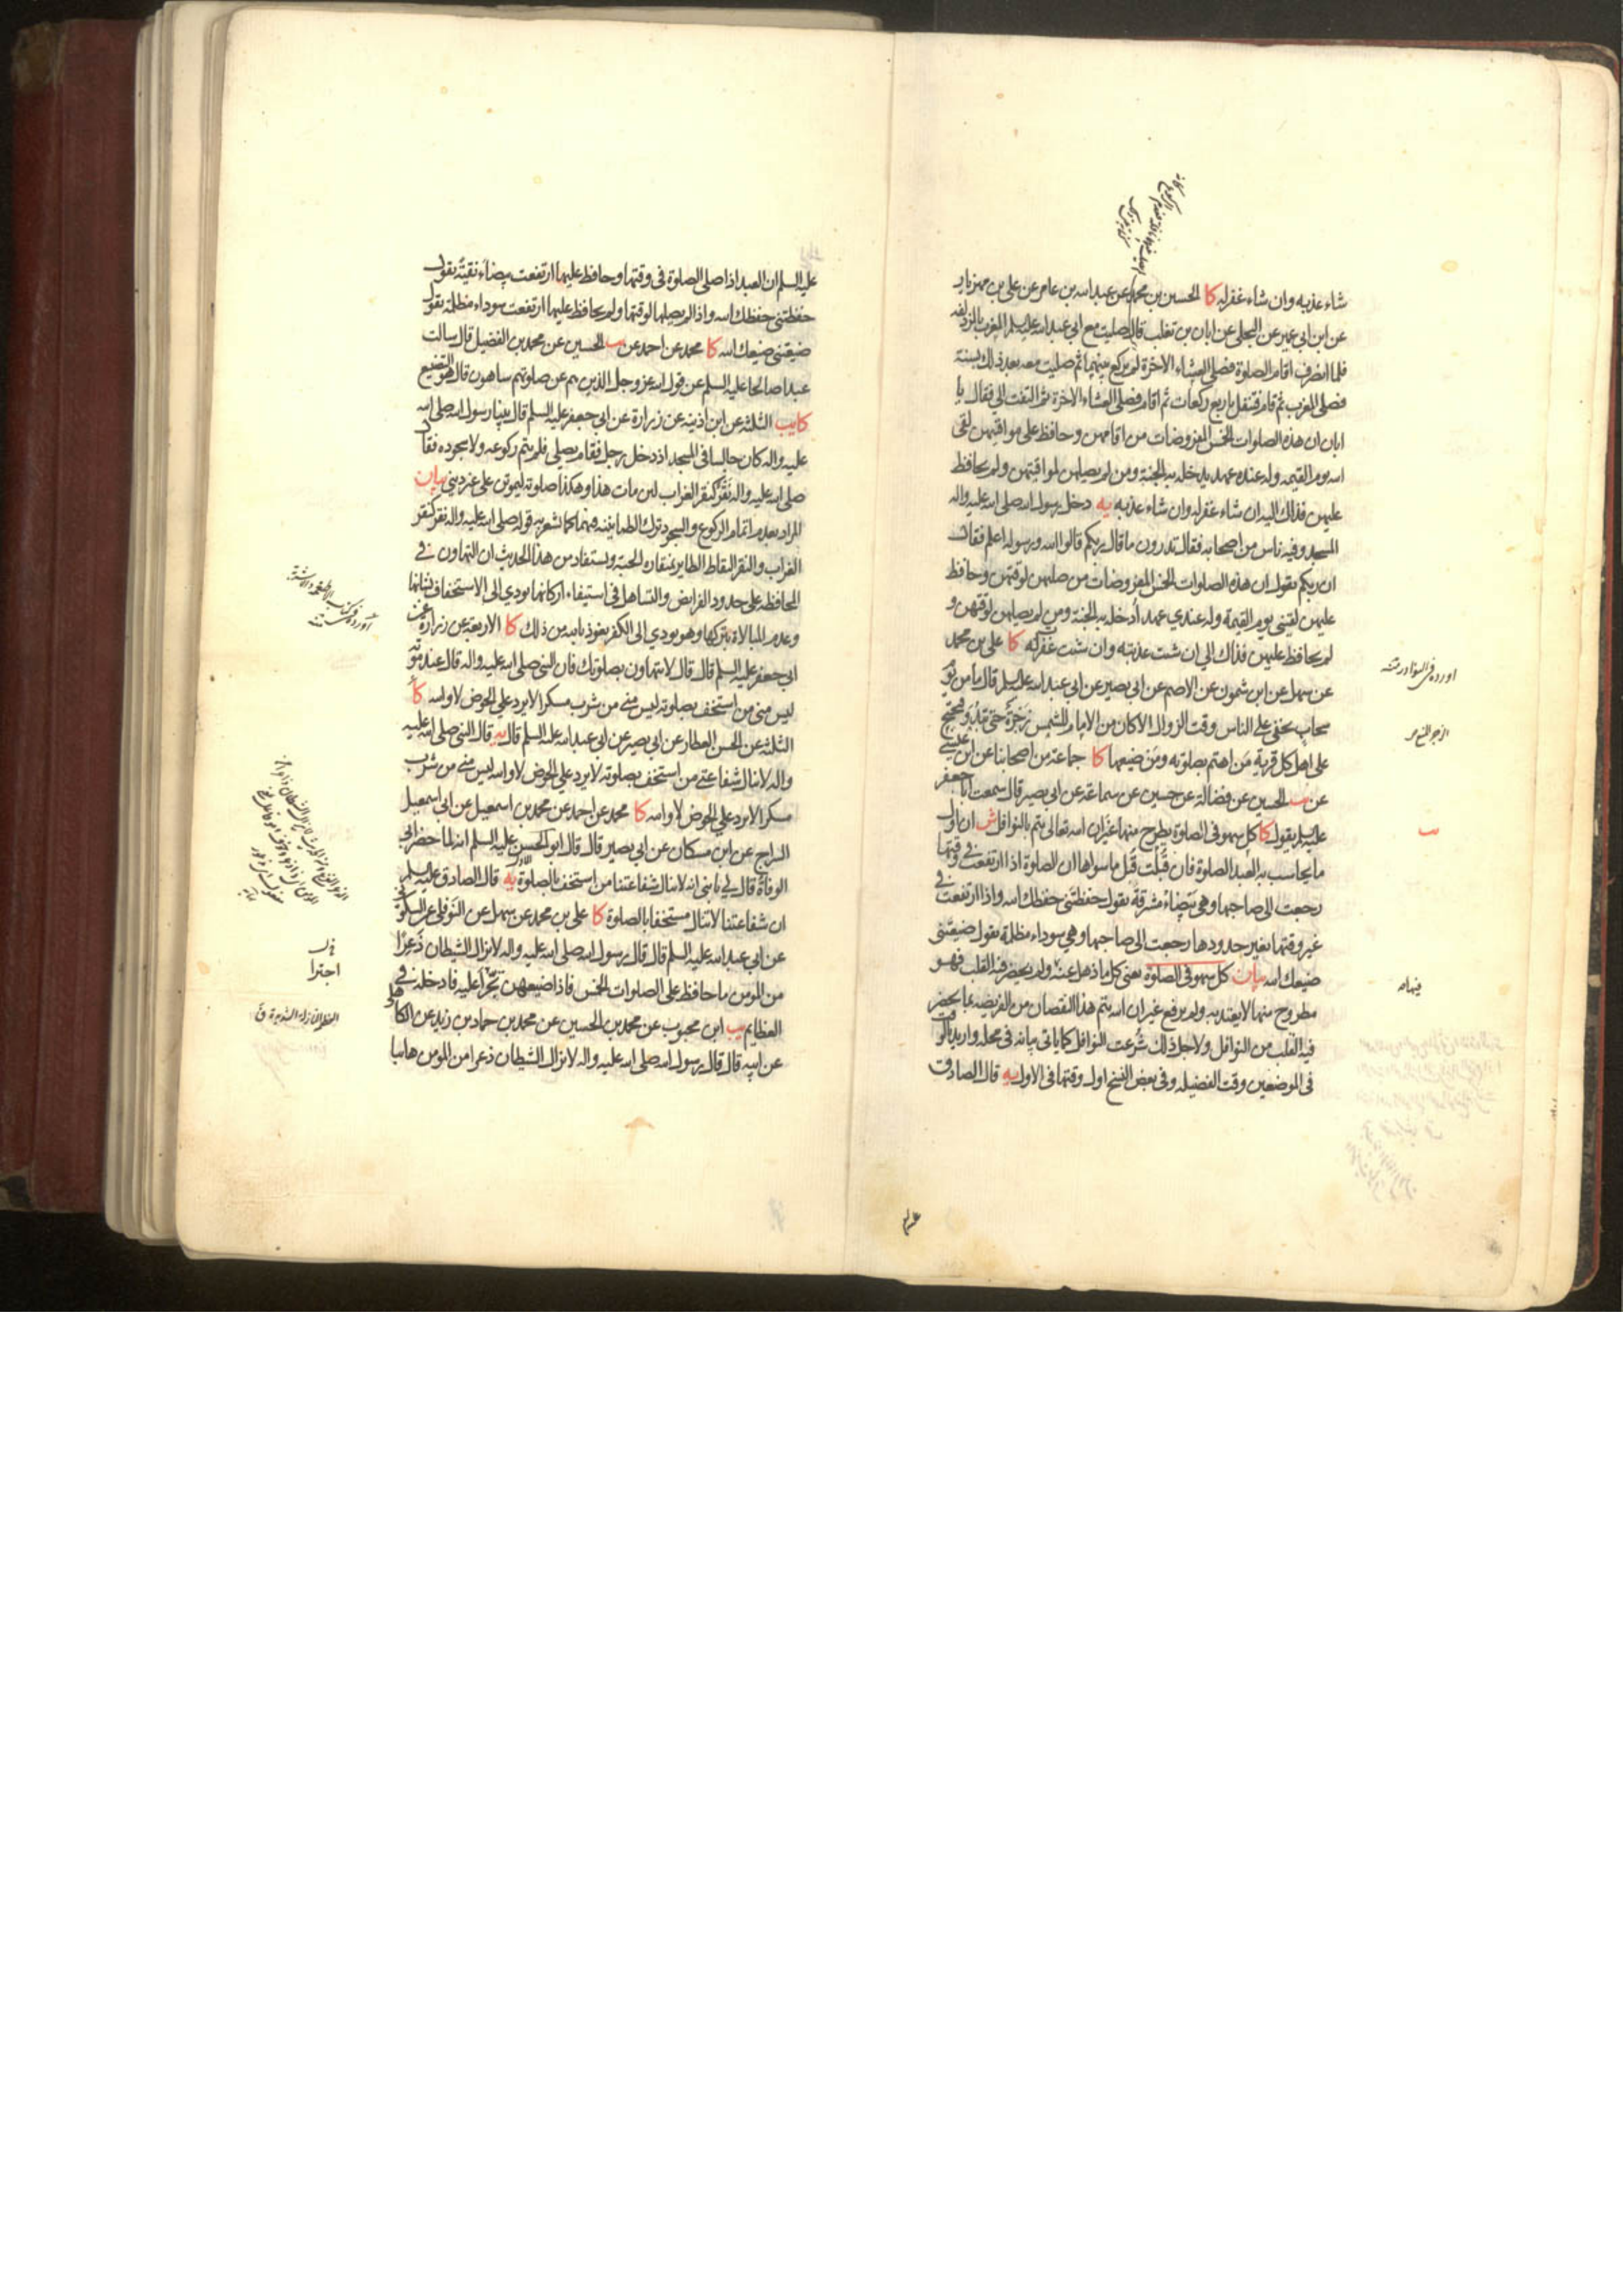 شاء عذبه وان شاء غفر له كا الحسين بن محمد عن عبد الله بن عامر عن علي بن مهزيار
عن ابن ابي عمير عن البجلي عن ابان بن تغلب قال صليت مع ابي عبد الله عليه السلم المغرب بالمزدلفه
فلما انصرف اقام الصلوة فصلى العشاء الاخرة لم يركع بينهما ثم صليت معه بعد ذلك بسنة
فصلى المغرب ثم قام فتنفل باربع ركعات ثم اقام فصلى العشاء الاخرة ثم التفت الي فقال يا
ابان ان هذه الصلوات الخمس المفروضات من اقامهن وحافظ على مواقيتهن لقى
الله يوم القيمه وله عنده عهد يدخله به الجنة ومن لم يصلهن لمواقيتهن ولم يحافظ
عليهن فذلك اليه ان شاء غفر له وان شاء عذبه يه دخل رسول الله صلى الله عليه واله
المسجد وفيه ناس من اصحابه فقال تدرون ما قال ربكم قالوا الله ورسوله اعلم فقال
ان ربكم يقول ان هذه الصلوات الخمس المفروضات من صلاهن لوقتهن وحافظ
عليهن لقيني يوم القيمة وله عندي عهد أدخله به الجنة ومن لم يصلهن لوقتهن و
لم يحافظ عليهن فذاك الي ان شئت عذبته وان شئت غفرت له كا علي بن محمد
عن سهل عن ابن شمون عن الاصم عن ابي بصير عن ابي عبد الله عليه السلم قال ما من يوم
سحاب يخفى على الناس وقت الزوال الا كان من الامام للشمس زجرة حتى تبدو فيحتج
على اهل كل قرية من اهتم بصلوته ومن ضيعها كا جماعة من اصحابنا عن ابن عيسى
عن الحسين عن فضالة عن حسين عن سماعة عن ابي بصير قال سمعت ابا جعفر
عليه السلم يقول كا كل سهو في الصلوة يطرح منها غير ان الله تعالى يتم بالنوافل ش ان اول
ما يحاسب به العبد الصلوة فان قبلت قبل ما سواها ان الصلوة اذا ارتفعت في وقتها
رجعت الى صاحبها وهي بيضاء مشرقة يقول حفظتني حفظك الله واذا ارتفعت في
غير وقتها بغير حدودها رجعت الى صاحبها وهي سوداء مظلمة يقول ضيعتني
ضيعك الله بيان كل سهو في الصلوة يعني كل ما ذهل عنه ولم يحضر فيه القلب فهو
مطروح منها لا يعتد به ولم يرفع غير ان الله يتم هذا النقصان من الفريضه بما يحضر
فيه القلب من النوافل ولاجل ذلك شرعت النوافل كما ياتي بيانه في محله واريد بالوقت
في الموضعين وقت الفضيله وفي بعض النسخ اول وقتها في الاول يه قال الصادق
اورده في النوادر منه
عليه السلم ان العبد اذا صلى الصلوة في وقتها وحافظ عليها ارتفعت بيضاء نقية يقول
حفظتني حفظك الله واذا لم يصلها لوقتها ولم يحافظ عليها ارتفعت سوداء مظلمة يقول
ضيعتني ضيعك الله كا محمد عن احمد عن الحسين عن محمد بن الفضيل قال سالت
عبدا صالحا عليه السلم عن قول الله عز وجل الذين هم عن صلوتهم ساهون قال هو التضييع
كا يب الثلثة عن ابن اذينه عن زرارة عن ابي جعفر عليه السلم قال بينا رسول الله صلى الله
عليه واله كان جالسا في المسجد اذ دخل رجل فقام يصلي فلم يتم ركوعه ولا سجوده فقال
صلى الله عليه واله نقر كنقر الغراب لئن مات هذا وهكذا صلوته ليموتن على غير ديني بيان
المراد بعدم اتمام الركوع والسجود ترك الطمانينه فيهما كما تشعر به قوله صلى الله عليه واله نقر كنقر
الغراب والنقر التقاط الطاير بمنقاره الحبة ويستفاد من هذا الحديث ان التهاون في
المحافظه على حدود الفرايض والتساهل في استيفاء اركانها يودي الى الاستخفاف بشانها
وعدم المبالاة بتركها وهو يودي الى الكفر نعوذ بالله من ذلك كا الاربعة عن زرارة عن
ابي جعفر عليه السلم قال قال لا تتهاون بصلوتك فان النبي صلى الله عليه واله قال عند موته
ليس مني من استخف بصلوته ليس مني من شرب مسكرا لا يرد علي الحوض لا والله كا
الثلثة عن الحسن العطار عن ابي بصير عن ابي عبد الله عليه السلم قال يه قال النبي صلى الله عليه
واله لا ينال شفاعتي من استخف بصلوته لا يرد علي الحوض لا والله ليس مني من شرب
مسكرا لا يرد علي الحوض لا والله كا محمد عن احمد عن محمد بن اسمعيل عن ابي اسمعيل
السراج عن ابن مسكان عن ابي بصير قال قال ابو الحسن عليه السلم انه لما حضر ابي
الوفاة قال لي يا بني انه لا ينال شفاعتنا من استخف بالصلوة يه قال الصادق عليه السلم
ان شفاعتنا لا تنال مستخفا بالصلوة كا علي بن محمد عن سهل عن النوفلي عن السكوني
عن ابي عبد الله عليه السلم قال قال رسول الله صلى الله عليه واله لا يزال الشيطان ذعرا
من المومن ما حافظ على الصلوات الخمس فاذا ضيعهن تجرا عليه فادخله في
العظايم يب ابن محبوب عن محمد بن الحسين عن محمد بن حماد بن زيد عن الكاهلي
عن ابيه قال قال رسول الله صلى الله عليه واله لا يزال الشيطان ذعرا من المومن هائبا
اجترا